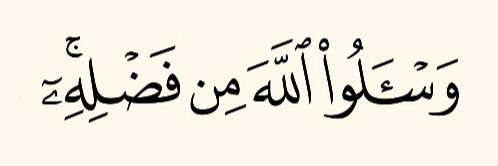 وَسْـَٔلُوا۟ ٱللَّهَ مِن فَضْلِهِۦٓ ۚ